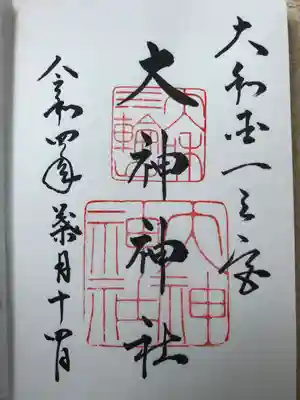 大和国一之宮
大神神社
令和四年葉月十四日
三輪
大神
神社